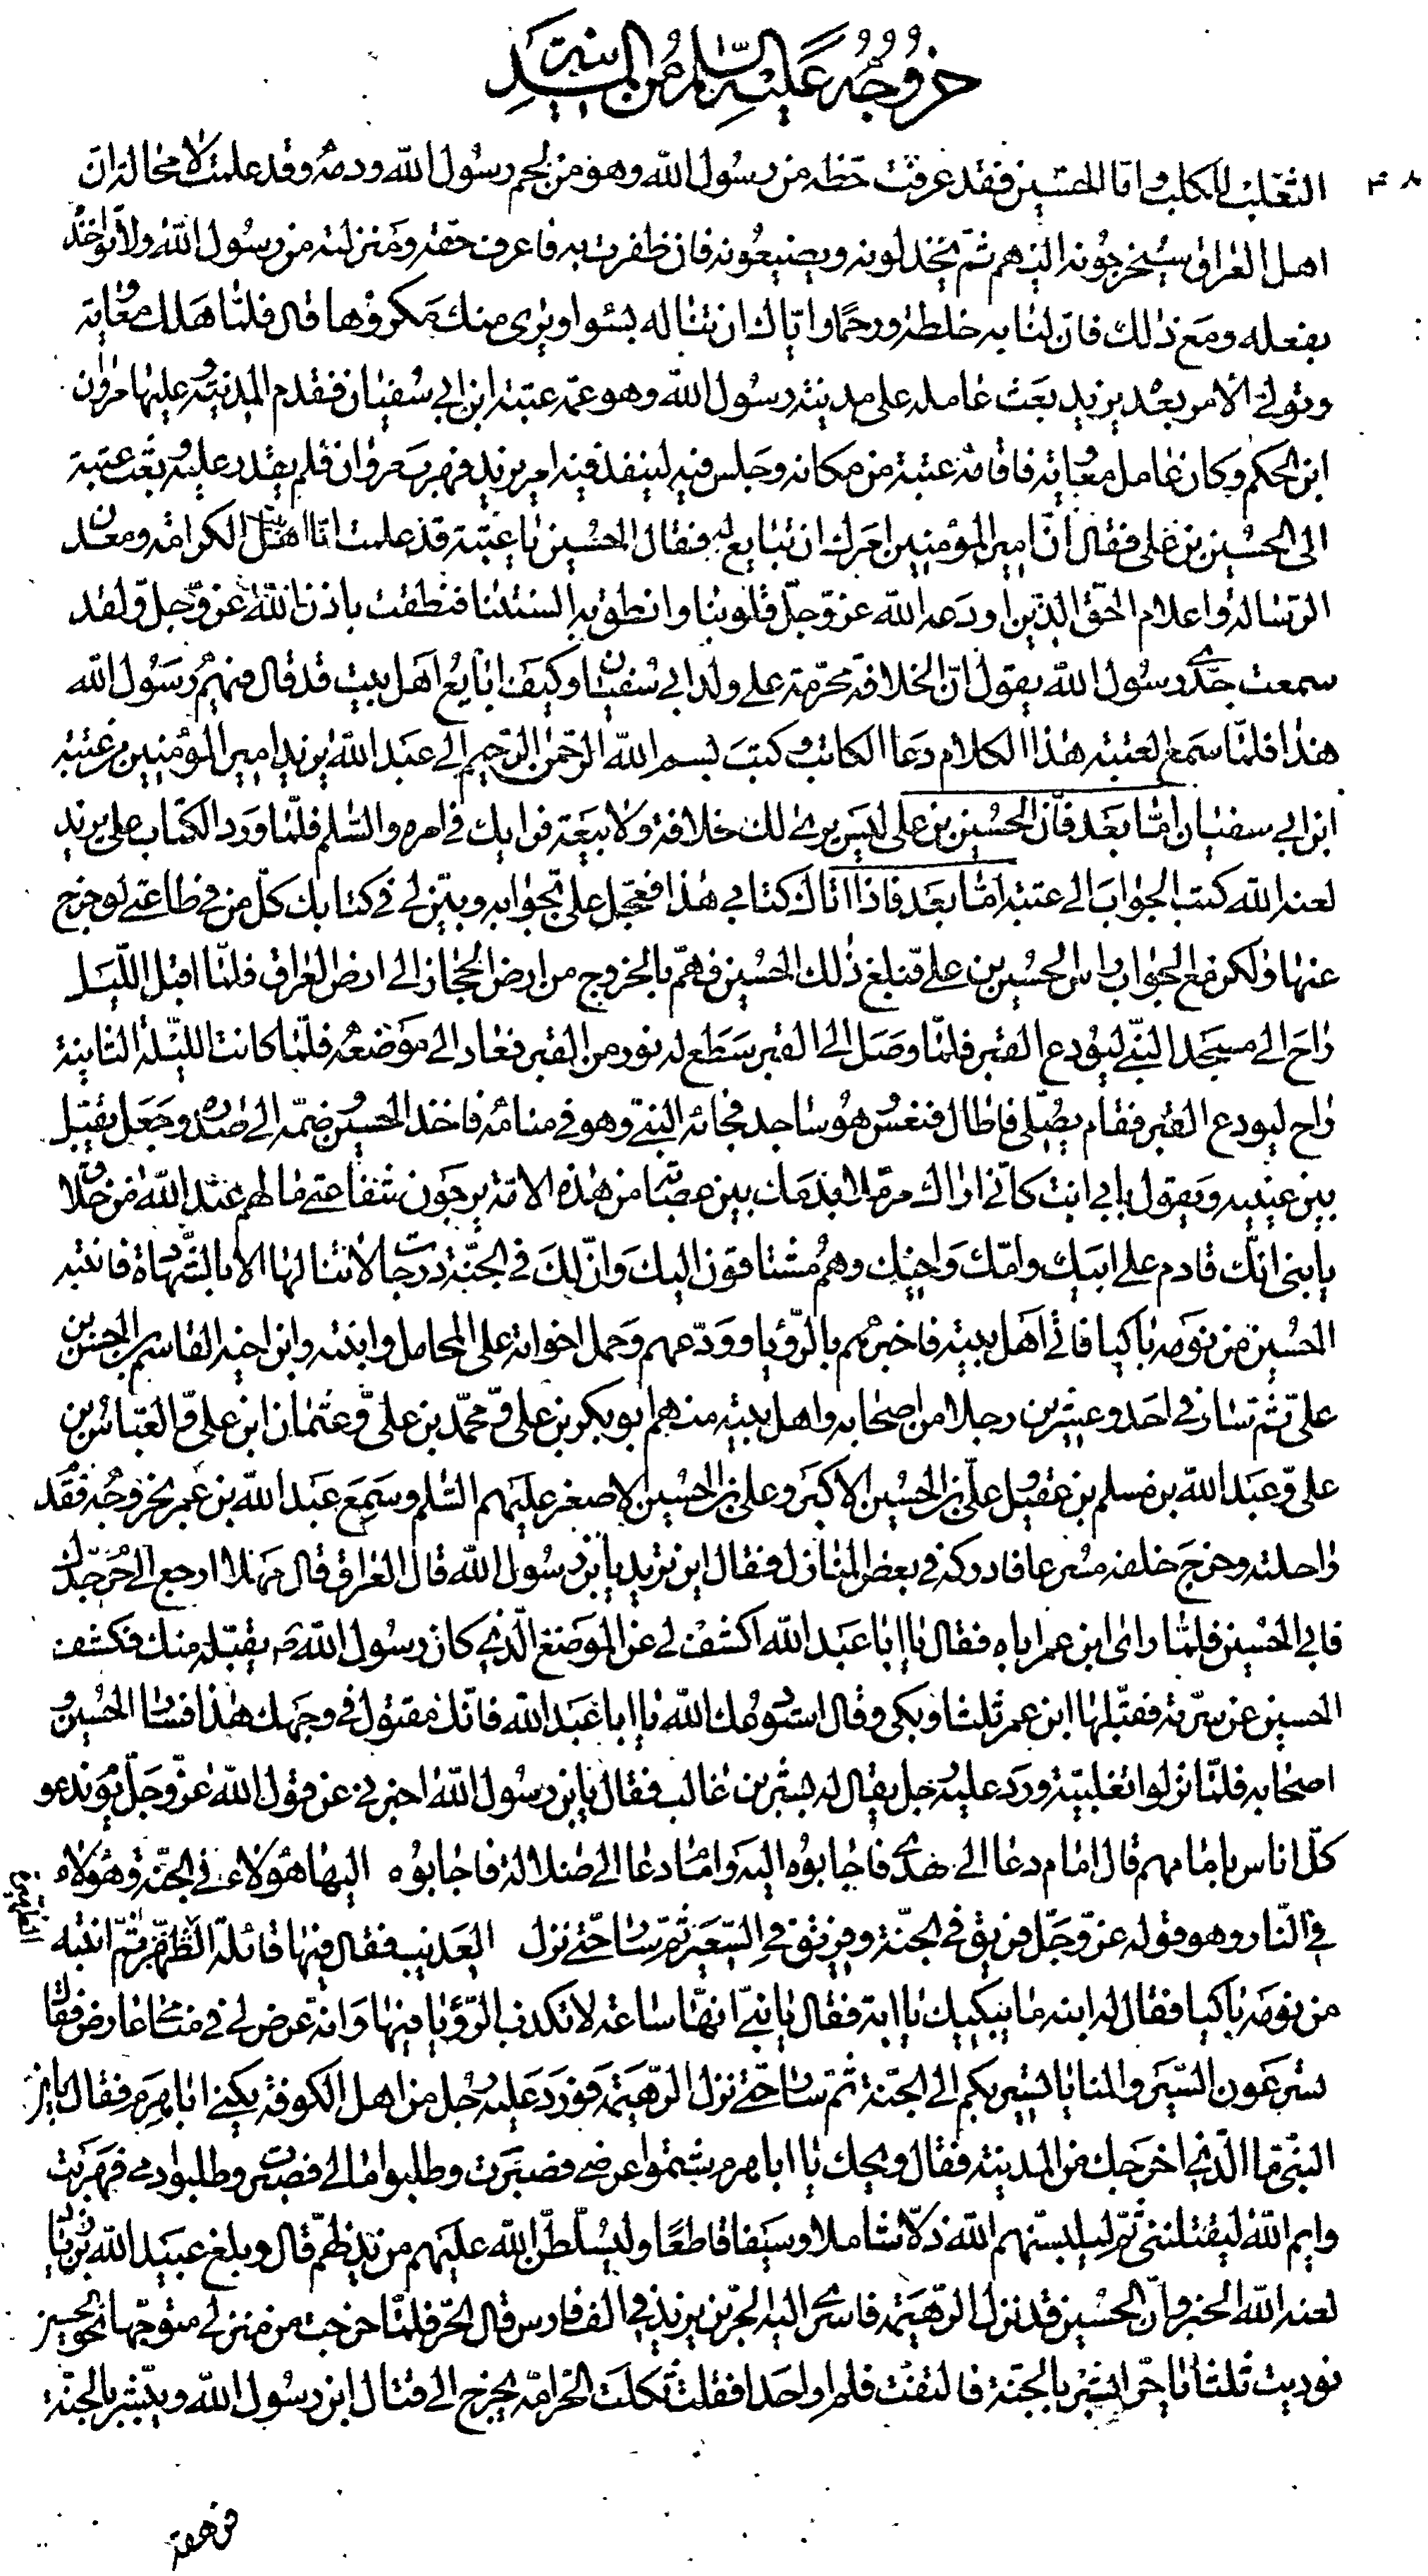 خروجه عليه السلم من المدينة
٣٠٨
الثعلب للكلب واما الحسين فقد عرفت حظه من رسول الله وهو من لحم رسول الله ودمه وقد علمت لا محالة ان
اهل العراق سيخرجونه اليهم ثم يخذلونه ويضيعونه فان ظفرت به فاعرف حقه ومنزلته من رسول الله ولا تؤاخذه
بفعله ومع ذلك فان لنا به خلطة ورحما واياك ان تناله بسوء او يرى منك مكروها قال فلما هلك معوية
وتولى الامر بعد يزيد بعث عامله على مدينة رسول الله وهو عمه عتبة ابن ابي سفيان فقدم المدينة وعليها مروان
ابن الحكم وكان عامل معوية فاقامه عتبة من مكانه وجلس فيه لينفذ فيه امر يزيد فهرب مروان فلم يقدر عليه وبعث عتبة
الى الحسين بن على فقال ان امير المؤمنين امرك ان تبايع له فقال الحسين يا عتبة قد علمت انا اهل بيت الكرامة ومعدن
الرسالة واعلام الحق الذين اودعه الله عز وجل قلوبنا وانطق به السنتنا فنطقت باذن الله عز وجل ولقد
سمعت جدي رسول الله يقول ان الخلافة محرمة على ولد ابي سفيان وكيف ابايع اهل بيت قد قال فيهم رسول الله
هذا فلما سمع العتبة هذا الكلام دعا الكاتب وكتب بسم الله الرحمن الرحيم الى عبد الله يزيد امير المؤمنين من عتبة
ابن ابي سفيان اما بعد فان الحسين بن على ليس يرى لك خلافة ولا بيعة فرايك في امره والسلم فلما ورد الكتاب على يزيد
لعنه الله كتب الجواب الى عتبة اما بعد فاذا اتاك كتابي هذا فعجل على بجوابه وبين لي في كتابك كل من في طاعتي او خرج
عنها وليكن مع الجواب راس الحسين بن على فبلغ ذلك الحسين فهم بالخروج من ارض الحجاز الى ارض العراق فلما اقبل الليل
راح الى مسجد النبي ليودع القبر فلما وصل الى القبر سطع له نور من القبر فعاد الى موضعه فلما كانت الليلة الثانية
راح ليودع القبر فقام يصلى فاطال فنعس وهو ساجد فجائه النبي وهو في منامه فاخذ الحسين وضمه الى صدره وجعل يقبل
بين عينيه ويقول بابي انت كاني اراك مرملا بدمك بين عصابة من هذه الامة يرجون شفاعتي ما لهم عند الله من خلاق
يا بني انك قادم على ابيك وامك واخيك وهم مشتاقون اليك وان لك في الجنة درجات لا تنالها الا بالشهادة فانتبه
الحسين من نومه باكيا فاتى اهل بيته فاخبرهم بالرؤيا وودعهم وحمل اخواته على المحامل وابنته وابن اخيه القاسم بن الحسن بن
على ثم سار في احد وعشرين رجلا من اصحابه واهل بيته منهم ابو بكر بن على ومحمد بن على وعثمان ابن على والعباس بن
على وعبد الله بن مسلم بن عقيل وعلى بن الحسين الاكبر وعلى بن الحسين الاصغر عليهم السلم وسمع عبد الله بن عمر بخروجه فقدم
راحلته وخرج خلفه مسرعا فادركه في بعض المنازل فقال اين تريد يابن رسول الله قال العراق قال مهلا ارجع الى حرم جدك
فابى الحسين فلما راى ابن عمر اباه فقال يا ابا عبد الله اكشف لي عن الموضع الذي كان رسول الله ص يقبله منك فكشف
الحسين عن سرته فقبلها ابن عمر ثلثا وبكى وقال استودعك الله يا ابا عبد الله فانك مقتول في وجهك هذا فسار الحسين و
اصحابه فلما نزلوا ثعلبية ورد عليه رجل يقال له بشر بن غالب فقال يابن رسول الله اخبرني عن قول الله عز وجل يوم ندعو
كل اناس بامامهم قال امام دعا الى هدى فاجابوه اليه وامام دعا الى ضلالة فاجابوه اليها هؤلاء في الجنة وهؤلاء
في النار وهو قوله عز وجل فريق في الجنة وفريق في السعير ثم سار حتى نزل العذيب فقال فيها قائلة الظهر ثم انتبه
من نومه باكيا فقال له ابنه ما يبكيك يا ابة فقال يا بني انها ساعة لا تكذب الرؤيا فيها وانه عرض لي في منامي عارض فقال
تسرعون السير والمنايا تسير بكم الى الجنة ثم سار حتى نزل الرهيمة فورد عليه رجل من اهل الكوفة يكنى ابا هرم فقال يابن
النبي ما الذي اخرجك من المدينة فقال ويحك يا ابا هرم شتموا عرضي فصبرت وطلبوا مالي فصبرت وطلبوا دمي فهربت
وايم الله ليقتلنني ثم ليلبسنهم الله ذلا شاملا وسيفا قاطعا وليسلطن الله عليهم من يذلهم قال وبلغ عبيد الله بن زياد
لعنه الله الخبر وان الحسين قد نزل الرهيمة فاسرى اليه الحر بن يزيد في الف فارس قال الحر فلما خرجت من منزلي متوجها نحو الحسين
نوديت ثلثا يا حر ابشر بالجنة فالتفت فلم ار احدا فقلت ثكلت الحر امه يخرج الى قتال ابن رسول الله ويبشر بالجنة